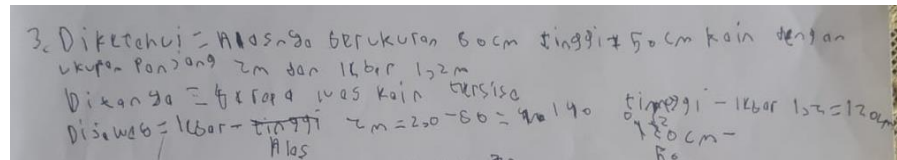 3. Diketahui = Alasnya berukuran 60cm tinggi 50cm kain dengan
ukuran Panjang 2m dan lebar 1,2m
Dixanya = berapa luas kain tersisa
Dijawab = lebar - 2m = 200 - 60 = 140 - lebar 1,2 = 120cm
Alas 120cm -